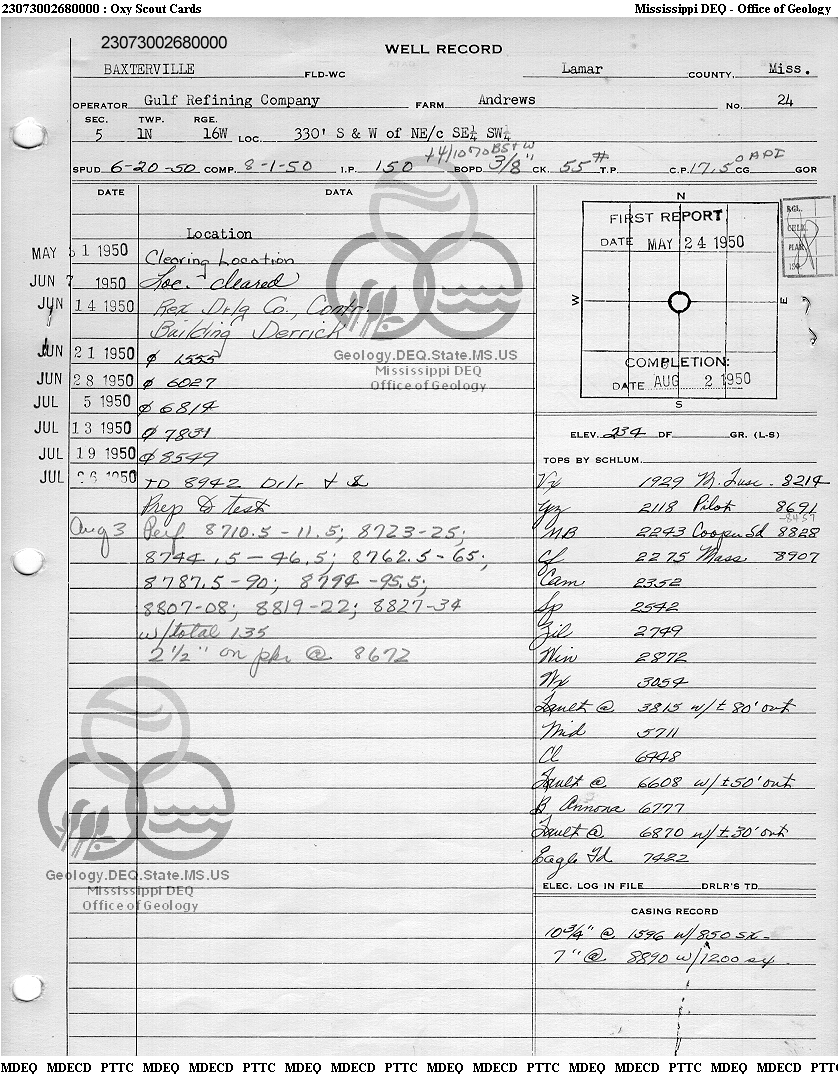 23073002680000 : Oxy Scout Cards Mississippi DEQ - Office of Geology
23073002680000
WELL RECORD
BAXTERVILLE FLD-WC Lamar COUNTY, Miss.
OPERATOR Gulf Refining Company FARM Andrews No. 24
SEC. TWP. RGE.
5 1N 16W LOC. 330' S & W of NE/c SE¼ SW¼
+4/10 70 BS+W
SPUD 6-20-50 COMP. 8-1-50 I.P. 150 BOPD 3/8" CK. 55# T.P. C.P. 17.5 CG °API GOR
DATE DATA
Location
MAY 31 1950 Clearing Location
JUN 7 1950 Loc. cleared
JUN 14 1950 Rex Drlg Co., Contr.
Building Derrick
JUN 21 1950 ⌀ 1555
JUN 28 1950 ⌀ 6027
JUL 5 1950 ⌀ 6814
JUL 13 1950 ⌀ 7831
JUL 19 1950 ⌀ 8549
JUL 26 1950 TD 8942 Drlr + S
Prep to test
Aug 3 Perf 8710.5-11.5; 8723-25;
8744.5-46.5; 8762.5-65;
8787.5-90; 8794-95.5;
8807-08; 8819-22; 8827-34
w/total 135
2½" on pkr @ 8672
Geology.DEQ.State.MS.US
Mississippi DEQ
Office of Geology
Geology.DEQ.State.MS.US
Mississippi DEQ
Office of Geology
N
FIRST REPORT
DATE MAY 24 1950
W E
COMPLETION:
DATE AUG 2 1950
S
ELEV. 234 DF. GR. (L-S)
TOPS BY SCHLUM.
Vx 1929 M. Tusc. 8214
Yz 2118 Pilot 8691
-8457
MB 2243 Cooper Sd 8828
Cf 2275 Mass 8907
Cam 2352
Sp 2542
Zil 2749
Win 2872
Wx 3054
Fault @ 3815 w/± 80' out
Mid 5711
Cl 6448
Fault @ 6608 w/±50' out
B Annona 6777
Fault @ 6870 w/±30' out
Eagle Fd 7422
ELEC. LOG IN FILE DRLR'S TD
CASING RECORD
10¾" @ 1596 w/850 sx
7" @ 8890 w/1200 sx
MDEQ MDECD PTTC MDEQ MDECD PTTC MDEQ MDECD PTTC MDEQ MDECD PTTC MDEQ MDECD PTTC